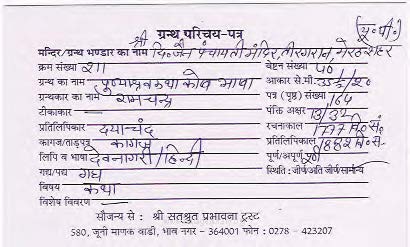 ग्रन्थ परिचय-पत्र (यू.पी.)
मन्दिर/ग्रन्थ भण्डार का नाम श्री दि. जैन पंचायती मंदिर, तीरगरान, मेरठ शहर
क्रम संख्या २११ वेष्टन संख्या ५०
ग्रन्थ का नाम पुण्याश्रवकथा कोष भाषा आकार से.मी.
ग्रन्थकार का नाम रामचन्द्र पत्र (पृष्ठ) संख्या 164
टीकाकार पंक्ति अक्षर 13/32
प्रतिलिपिकार दयाचंद रचनाकाल 1777 वि० सं.
कागज/ताड़पत्र कागज प्रतिलिपिकाल 1882 वि० सं.
लिपि व भाषा देवनागरी/हिन्दी पूर्ण/अपूर्ण पूर्ण
गद्य/पद्य गद्य स्थिति : जीर्ण/अति जीर्ण/सामान्य
विषय कथा
विशेष विवरण
सौजन्य से : श्री सत्श्रुत प्रभावना ट्रस्ट
580, जूनी माणक वाडी, भाव नगर - 364001 फोन : 0278 - 423207